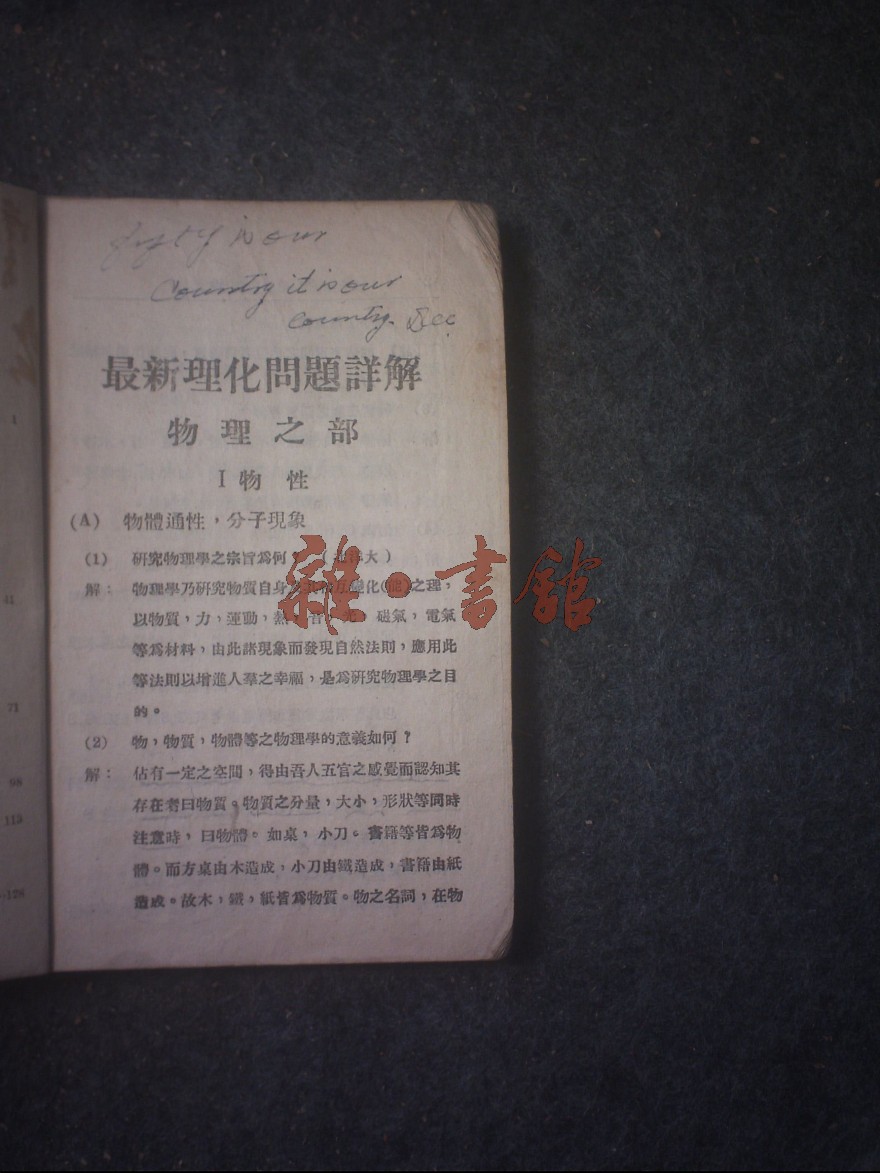 is our
Country it is our
Country.
最新理化問題詳解
物理之部
I 物性
(A) 物體通性，分子現象
(1) 研究物理學之宗旨爲何？（大）
解： 物理學乃研究物質自身變化(能)之理，
以物質，力，運動，熱，磁氣，電氣
等爲材料，由此諸現象而發現自然法則，應用此
等法則以增進人羣之幸福，是爲研究物理學之目
的。
(2) 物，物質，物體等之物理學的意義如何？
解： 佔有一定之空間，得由吾人五官之感覺而認知其
存在者曰物質。物質之分量，大小，形狀等同時
注意時，曰物體。如桌，小刀。書籍等皆爲物
體。而方桌由木造成，小刀由鐵造成，書籍由紙
造成。故木，鐵，紙皆爲物質。物之名詞，在物
雜·書館
1
41
71
98
113
128